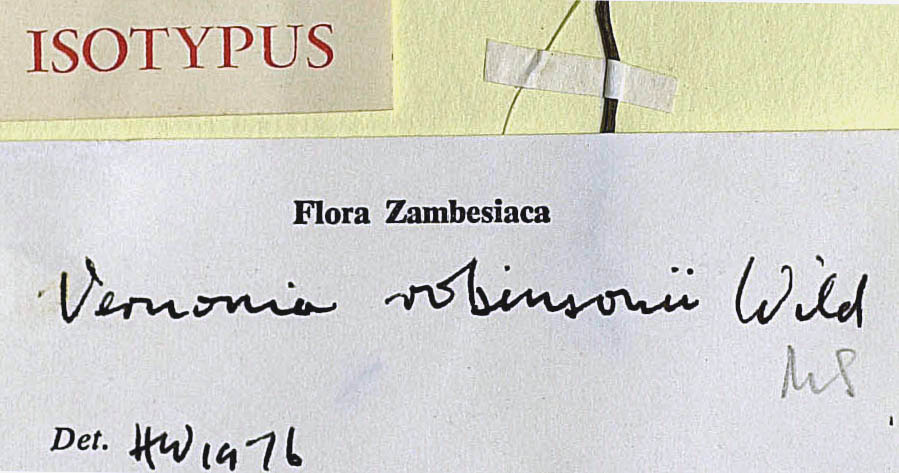 ISOTYPUS
Flora Zambesiaca
Vernonia robinsonii Wild
MS
Det. HW 1976